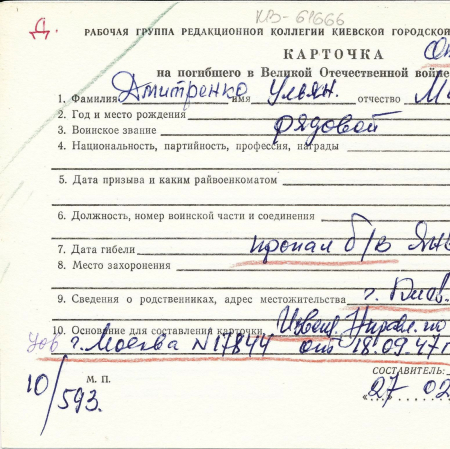 КВ-61666
Д.
РАБОЧАЯ ГРУППА РЕДАКЦИОННОЙ КОЛЛЕГИИ КИЕВСКОЙ ГОРОДСКОЙ
КАРТОЧКА
на погибшего в Великой Отечественной войне
1. Фамилия Дмитренко имя Ульян. отчество М
2. Год и место рождения
3. Воинское звание рядовой
4. Национальность, партийность, профессия, награды
5. Дата призыва и каким райвоенкоматом
6. Должность, номер воинской части и соединения
7. Дата гибели пропал б/в Янв
8. Место захоронения
9. Сведения о родственниках, адрес местожительства г. Киев
10. Основание для составления карточки Извещ. Управл. по
г. Москва N 17844 от 18.09.47 г
СОСТАВИТЕЛЬ:
10/593.
М. П.
"27" 02